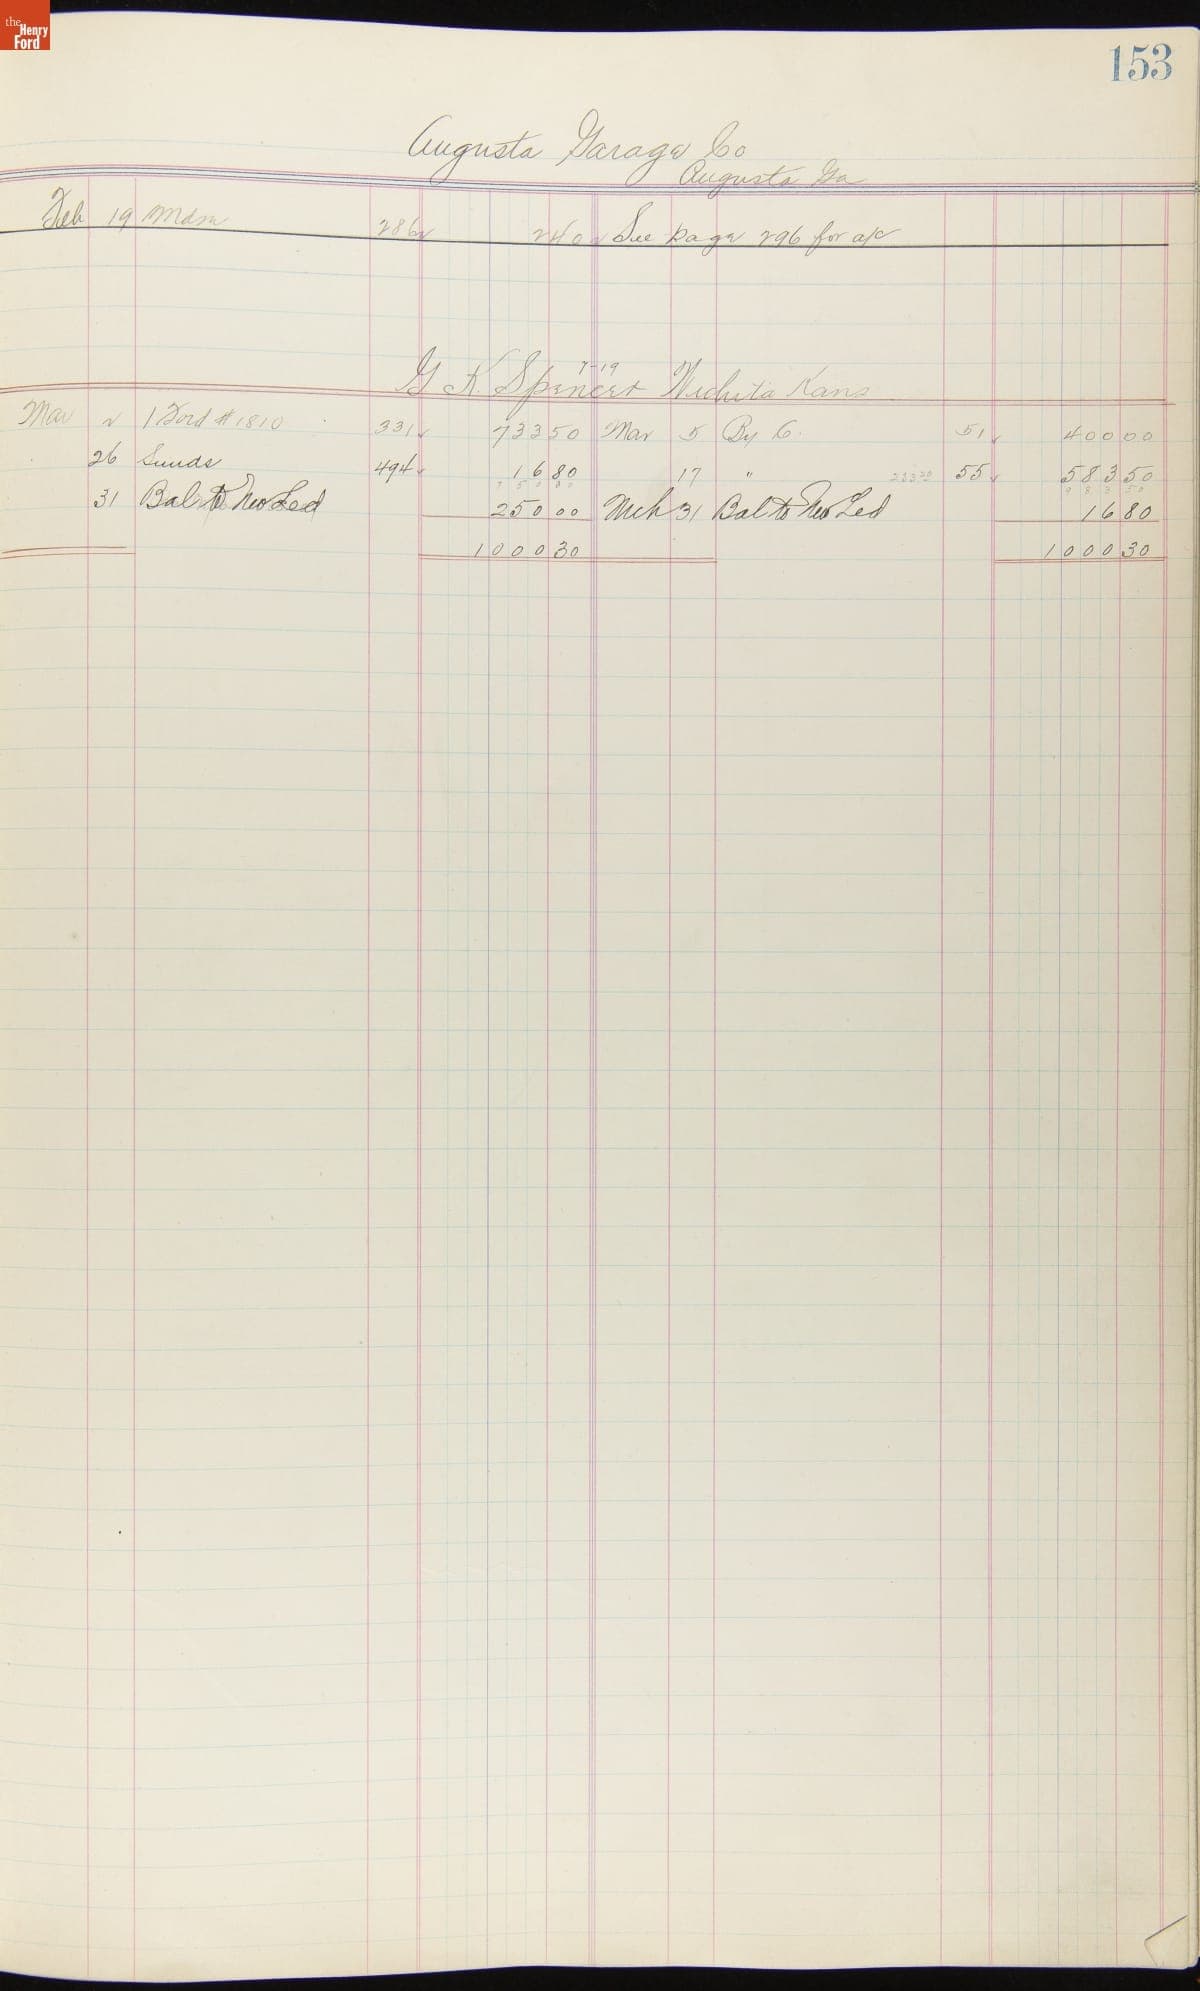 the Henry Ford
153
Augusta Garage Co
Augusta Ga
Feb 19 Mdse 286 ✓ 2 40 ✓ See page 296 for a/c
7-19
G K. Spencer Wichita Kans
Mar 2 1 Ford # 1810 331 ✓ 733 50 Mar 5 By C. 51 ✓ 400 00
26 Sunds 494 ✓ 16 80 17 " 55 ✓ 583 50
750 30 983 50
31 Bal to New Led 250 00 Mch 31 Bal to New Led 16 80
1000 30 1000 30